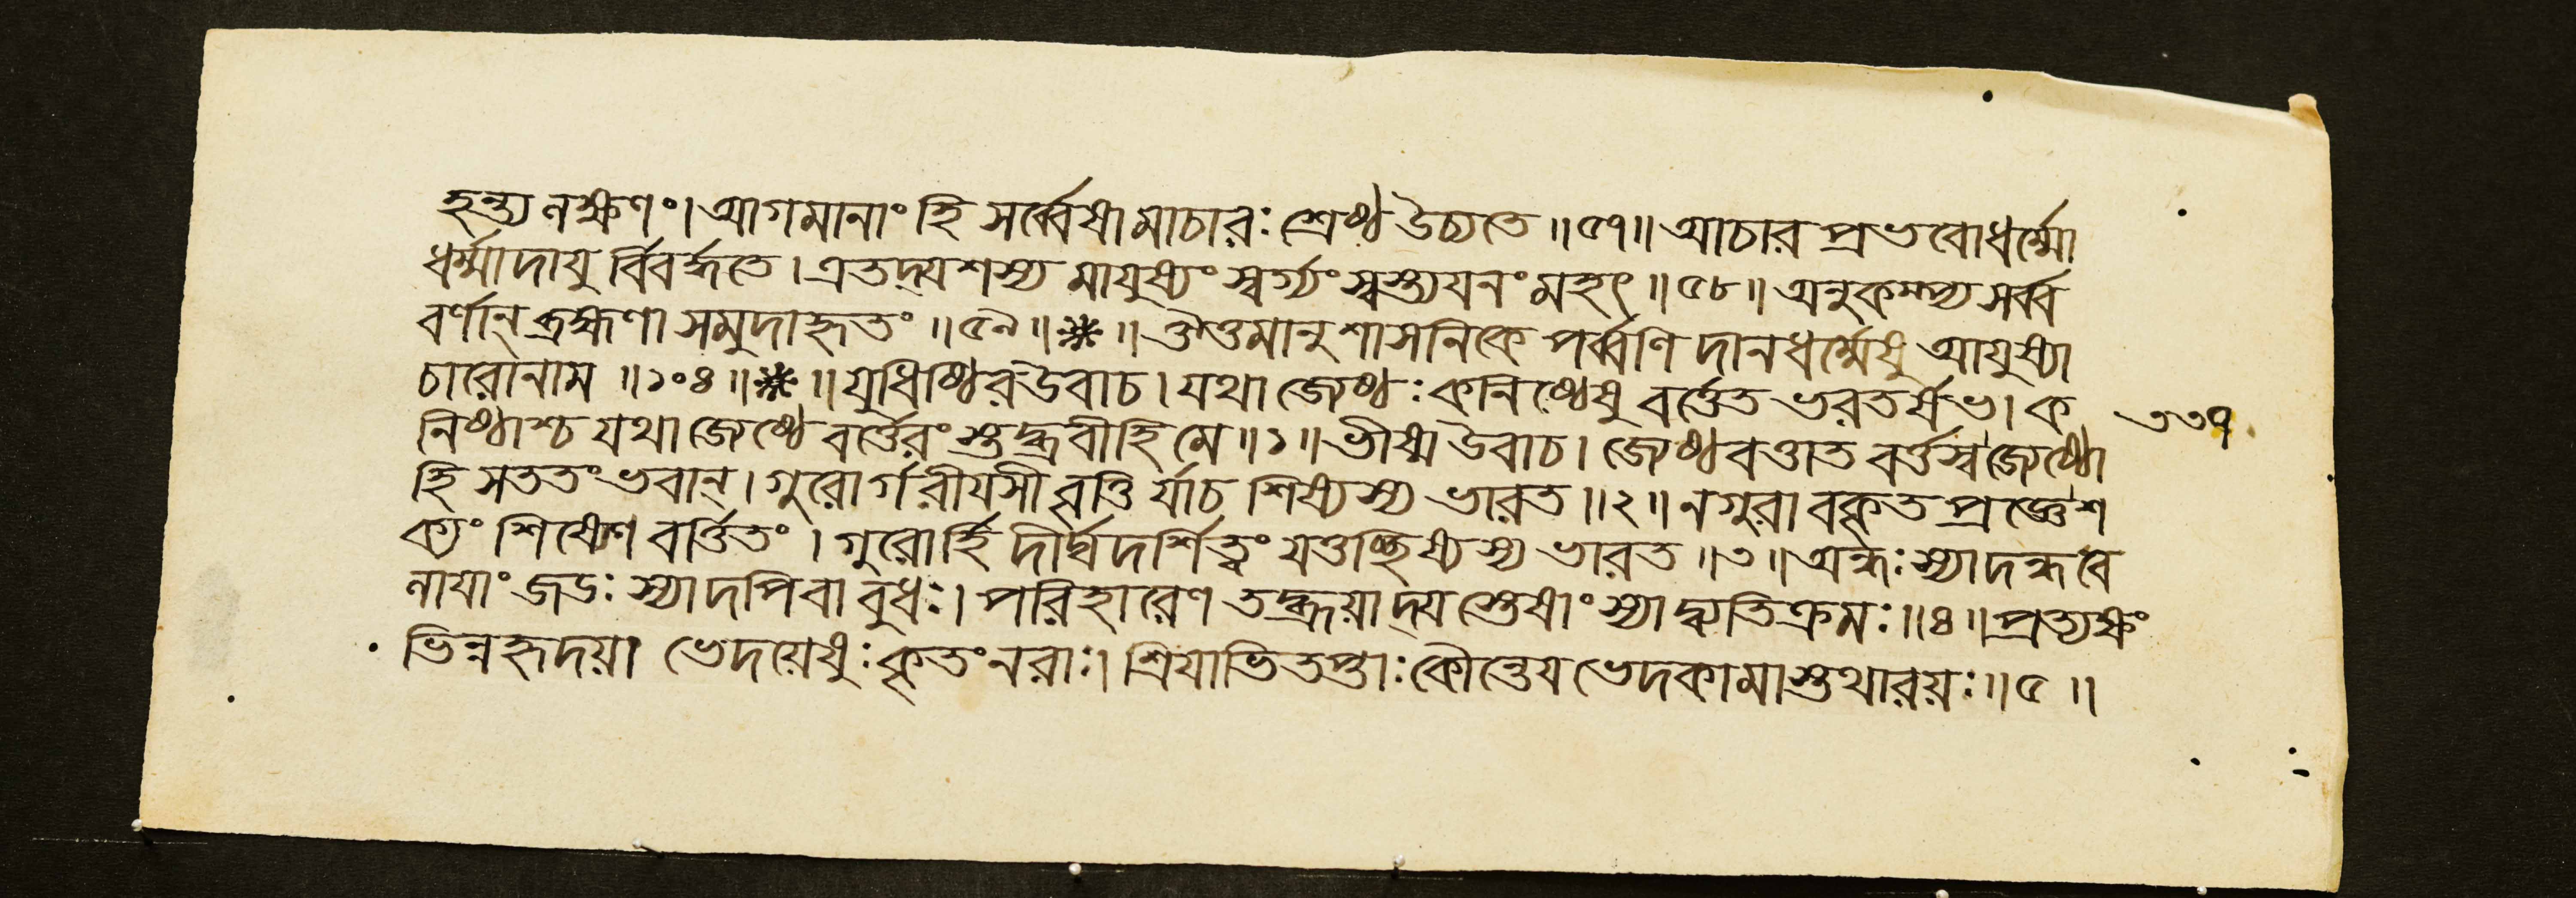 হন্ত্য লক্ষণং। আগমানাং হি সর্ব্বেষামাচারঃ শ্রেষ্ঠ উচ্যতে ॥৫৭॥ আচার প্রভবোধর্ম্মো
ধর্ম্মাদায়ু র্বিবর্দ্ধতে। এতদ্যশস্য মায়ুষ্যং স্বর্গ্যং স্বস্ত্যয়নং মহৎ ॥৫৮॥ অনুকম্প্য সর্ব্ব
বর্ণান্ ব্রহ্মণা সমুদাহৃতং ॥৫৯॥ * ॥ ঔত্তমানুশাসনিকে পর্ব্বণি দানধর্ম্মেষু আয়ুষ্যা
চারোনাম ॥১০৪॥ * ॥ যুধিষ্ঠির উবাচ। যথা জেষ্ঠঃ কনিষ্ঠেষু বর্ত্তেত ভরতর্ষভ। ক
নিষ্ঠাশ্চ যথা জেষ্ঠে বর্ত্তেরং স্তদ্ব্রবীহি মে ॥১॥ ভীষ্ম উবাচ। জেষ্ঠবত্তাত বর্ত্তস্ব জেষ্ঠো
হি সততং ভবান্। গুরোর্গরীয়সী বৃত্তি র্যাচ শিষ্যস্য ভারত ॥২॥ ন গুরাবকৃত প্রজ্ঞে শ
ক্যং শিষ্যেণ বর্ত্তিতং। গুরোর্হি দীর্ঘদর্শিত্বং যত্তচ্ছিষ্যস্য ভারত ॥৩॥ অন্ধঃ স্যাদন্ধবে
লায়াং জডঃ স্যাদপিবা বুধঃ। পরিহারেণ তদ্ব্রূয়াদ্যস্তেষাং স্যাদ্ব্যতিক্রমঃ ॥৪॥ প্রত্যক্ষং
ভিন্নহৃদয়া ভেদয়েয়ুঃ কৃতং নরাঃ। শ্রিয়াভিতপ্তাঃ কৌন্তেয় ভেদকামাস্তথারয়ঃ ॥৫॥
৩৩৭